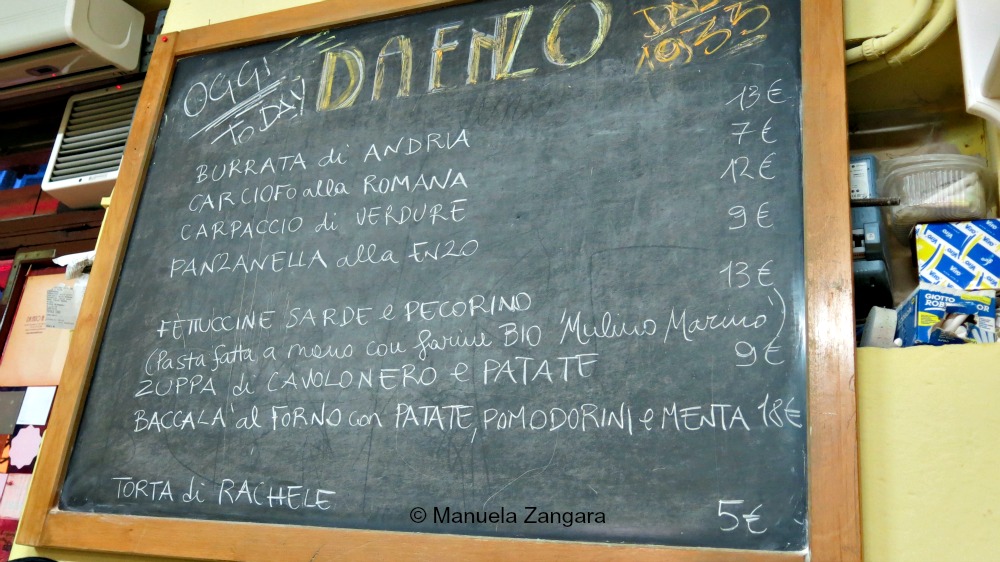 OGGI
TODAY
DA ENZO
DAL
1933
BURRATA di ANDRIA 13€
CARCIOFO alla ROMANA 7€
CARPACCIO di VERDURE 12€
PANZANELLA alla ENZO 9€
FETTUCCINE SARDE e PECORINO 13€
(Pasta fatta a mano con farine BIO "Mulino Marino")
ZUPPA di CAVOLONERO e PATATE 9€
BACCALA' al FORNO con PATATE, POMODORINI e MENTA 18€
TORTA di RACHELE 5€
© Manuela Zangara
GIOTTO